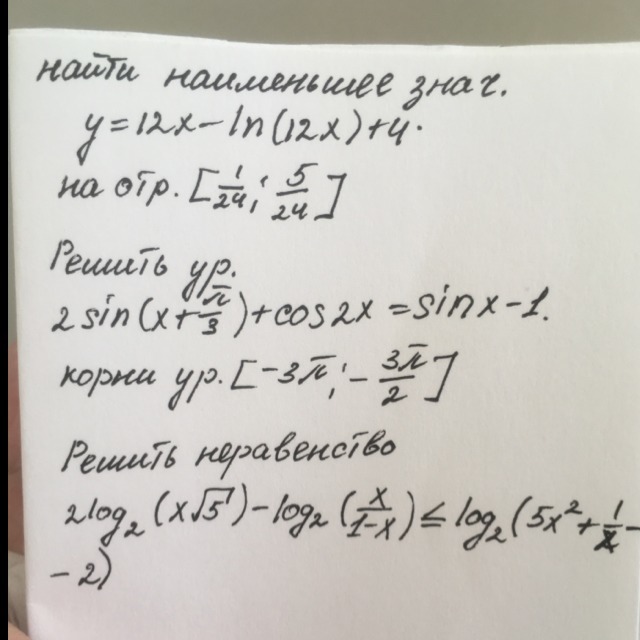 найти наименьшее знач.
y=12x-ln(12x)+4.
на отр. [1/24; 5/24]
Решить ур.
2sin(x+π/3)+cos2x=sinx-1.
корни ур. [-3π; -3π/2]
Решить неравенство
2log₂(x√5)-log₂(x/1-x)≤log₂(5x²+1/x-
-2)